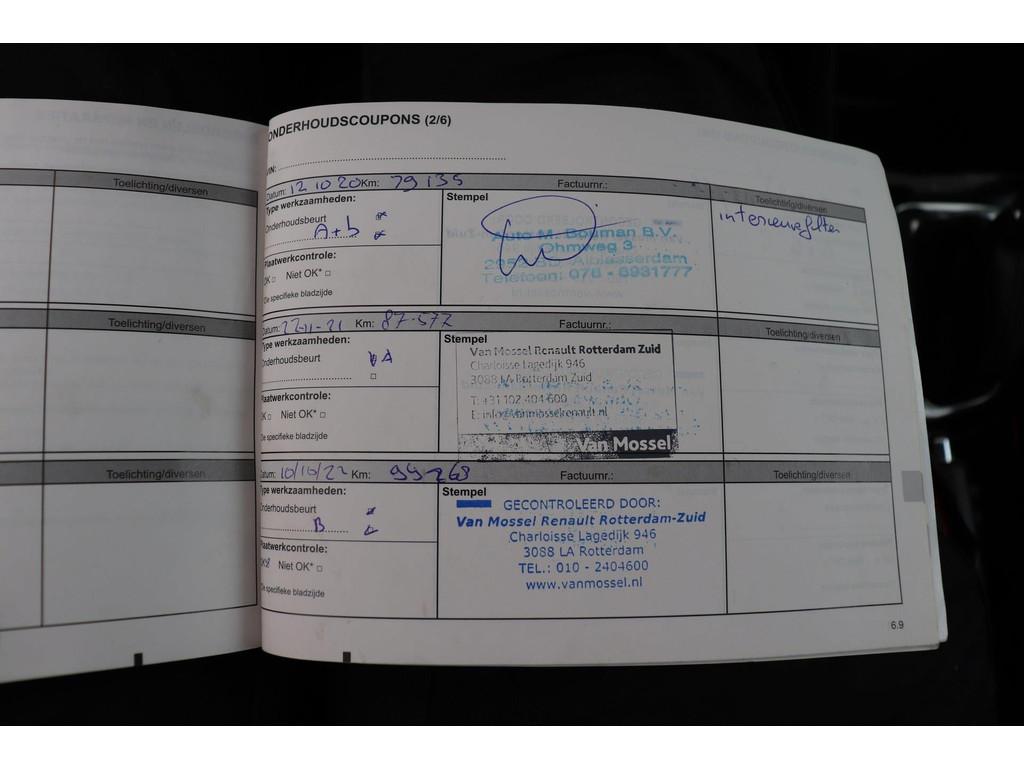 Toelichting/diversen
Toelichting/diversen
Toelichting/diversen
ONDERHOUDSCOUPONS (2/6)
VIN:
Datum: 12 10 20 Km: 79135 Factuurnr.:
Type werkzaamheden:
Onderhoudsbeurt
A+b
Plaatwerkcontrole:
OK □ Niet OK* □
Zie specifieke bladzijde
Stempel
Auto M. Bouman B.V.
Ohmweg 3
Alblasserdam
Telefoon: 078 - 6931777
Toelichting/diversen
interieurfilter
Datum: 22-11-21 Km: 87.577 Factuurnr.:
Type werkzaamheden:
Onderhoudsbeurt A
Plaatwerkcontrole:
OK □ Niet OK* □
Zie specifieke bladzijde
Stempel
Van Mossel Renault Rotterdam Zuid
Charloisse Lagedijk 946
3088 LA Rotterdam Zuid
T: +31 102 404 600
E: info@vanmosselrenault.nl
Van Mossel
Toelichting/diversen
Datum: 10/10/22 Km: 99268 Factuurnr.:
Type werkzaamheden:
Onderhoudsbeurt
B
Plaatwerkcontrole:
OK Niet OK* □
Zie specifieke bladzijde
Stempel
GECONTROLEERD DOOR:
Van Mossel Renault Rotterdam-Zuid
Charloisse Lagedijk 946
3088 LA Rotterdam
TEL.: 010 - 2404600
www.vanmossel.nl
Toelichting/diversen
6.9